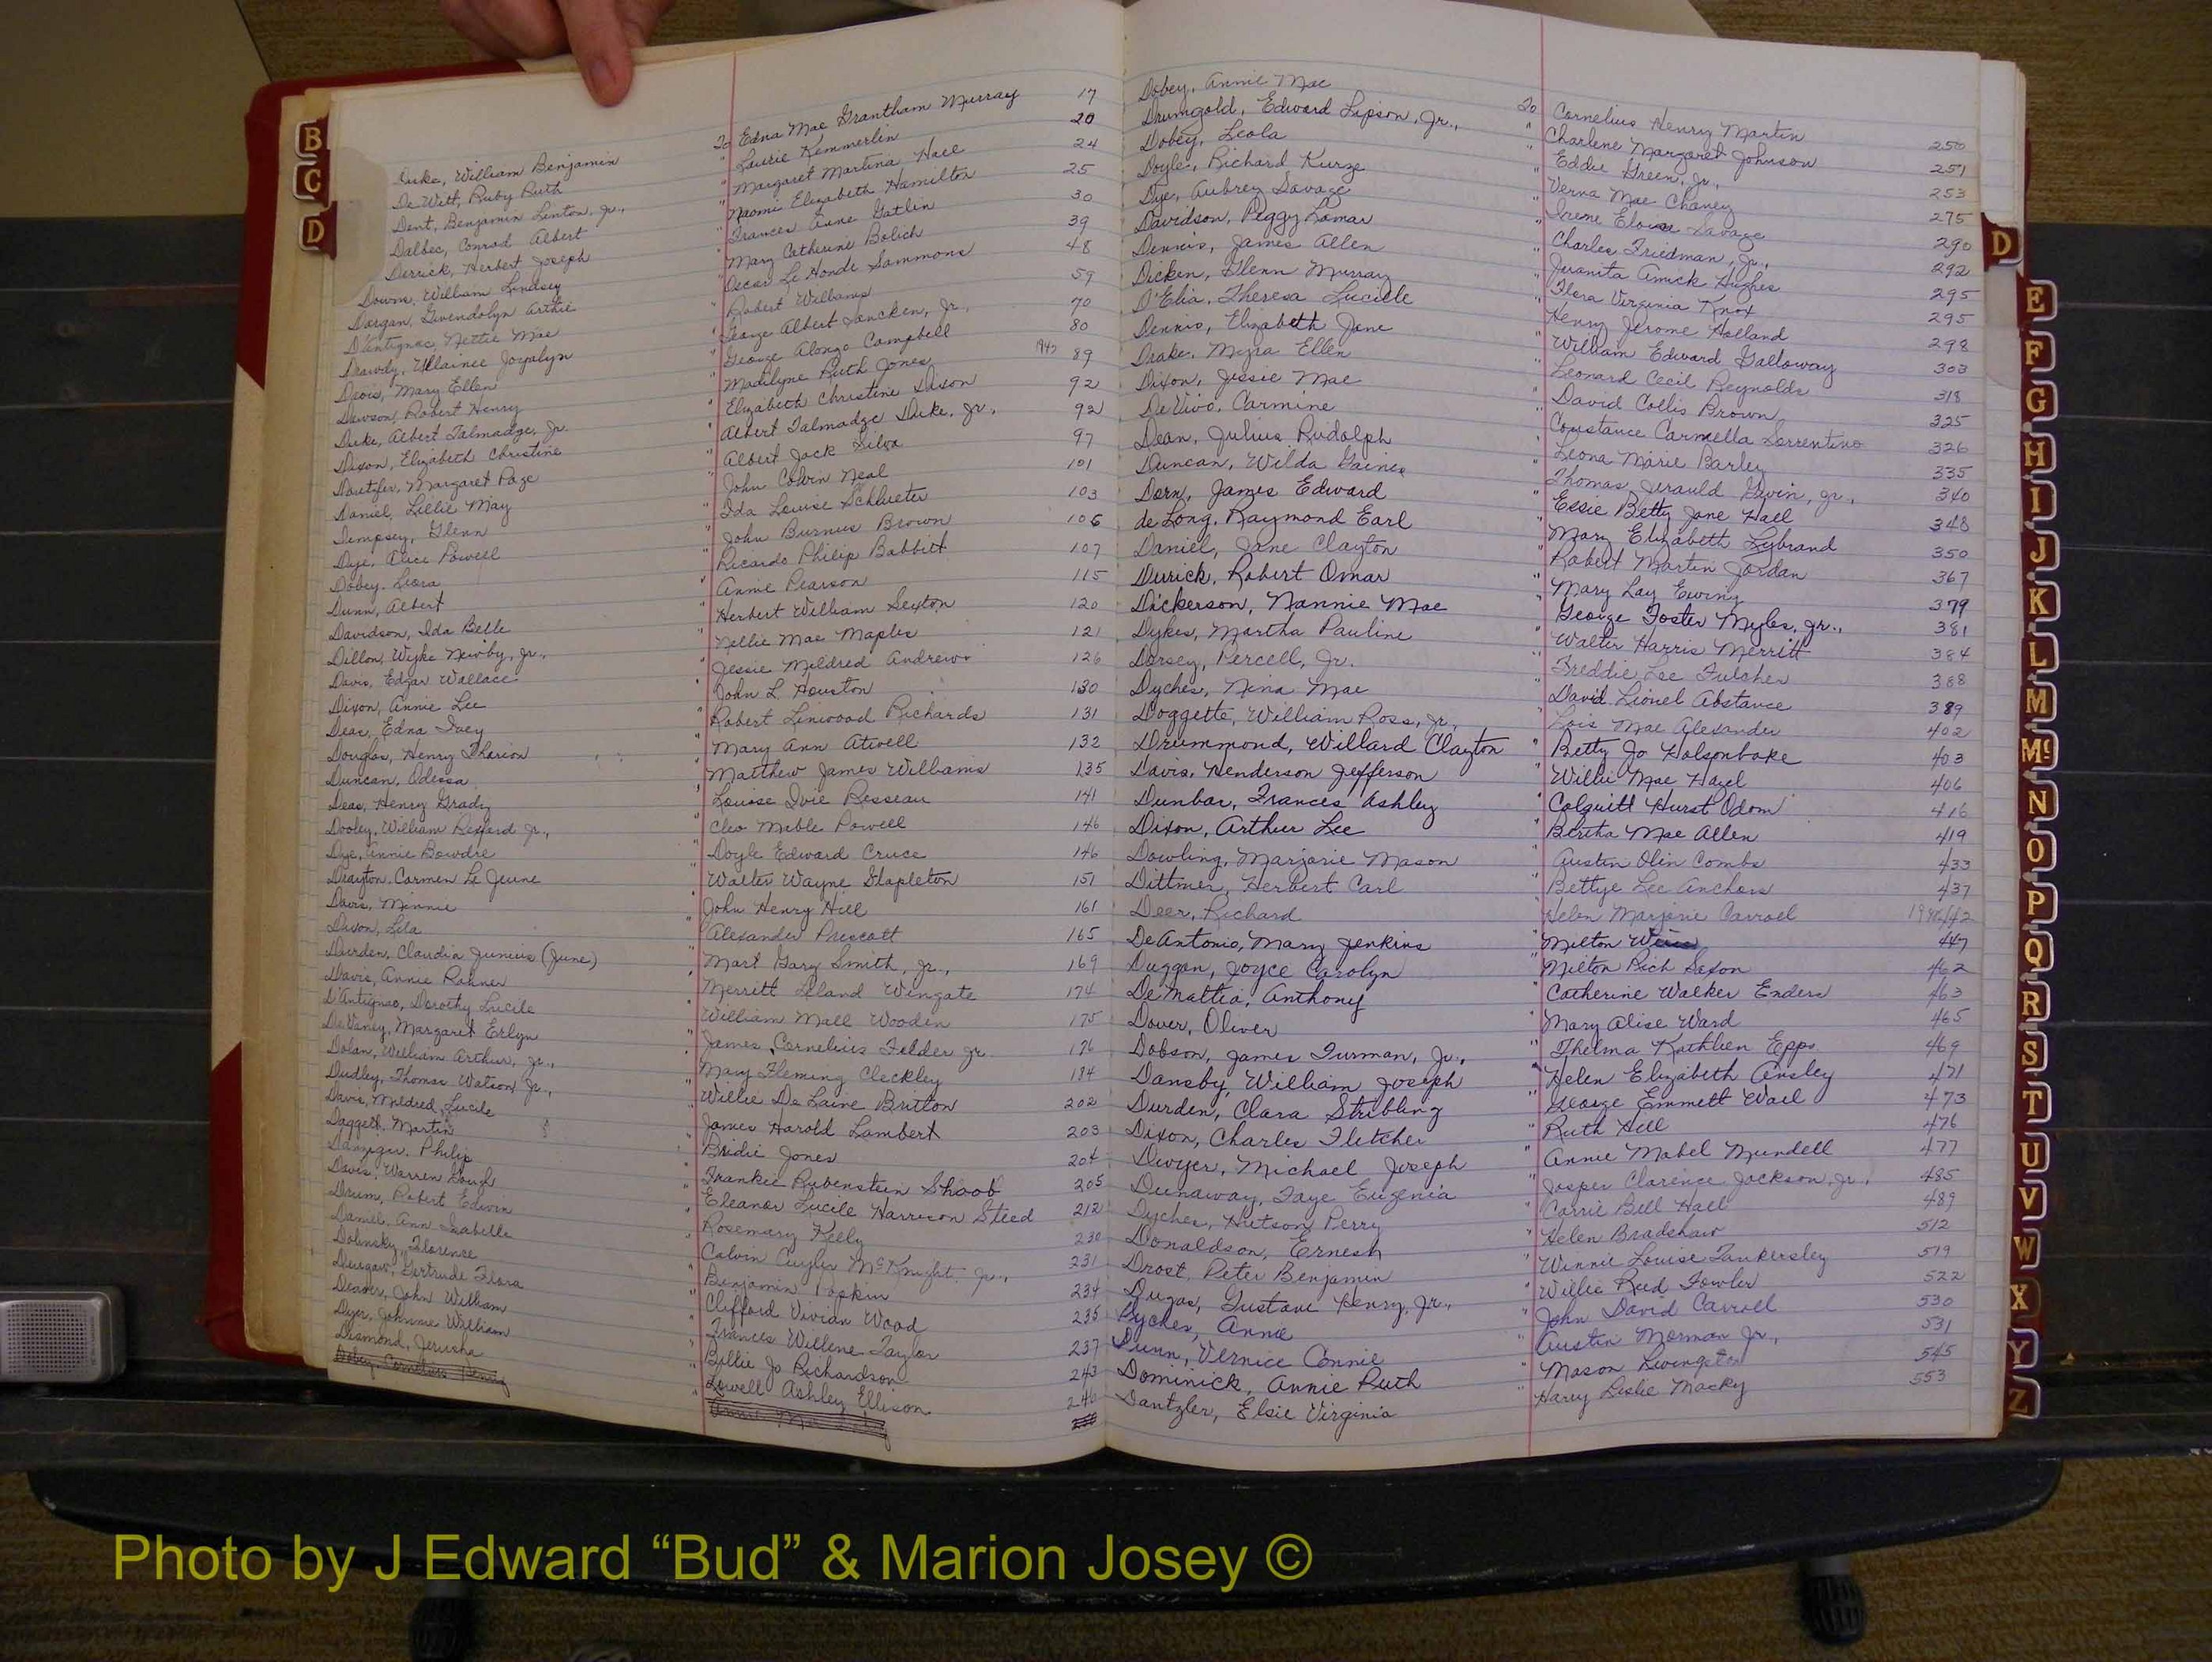 B
C
D
Duke, William Benjamin To Edna Mae Grantham Murray 17
De Witt, Ruby Ruth " Laurie Kemmerlin 20
Dent, Benjamin Linton, Jr., " Margaret Martina Hall 24
Dalbec, Conrad Albert " Naomi Elizabeth Hamilton 25
Derrick, Herbert Joseph " Frances Anne Gatlin 30
Downs, William Lindsey " Mary Catherine Bolich 39
Dorgan, Gwendolyn Arthie " Oscar Le Honde Sammons 48
D'Antignac, Nettie Mae " Robert Williams 59
Drawdy, Joyalyn " George Albert Sancken, Jr., 70
Davis, Mary Ellen " George Alonzo Campbell 80
Dawson, Robert Henry " Madilyne Ruth Jones 1947 89
Duke, Albert Talmadge, Jr. " Elizabeth Christine Dixon 92
Dixon, Elizabeth Christine " Albert Talmadge Duke, Jr., 92
Margaret Page " Albert Jack Silva 97
Daniel, Lillie May " John Colvin Neal 101
Dempsey, Glenn " Ida Louise Schlueter 103
Dye, Alice Powell " John Burnus Brown 106
Dobey, Leora " Ricardo Philip Babbitt 107
Dunn, Albert " Annie Pearson 115
Davidson, Ida Belle " Herbert William Sexton 120
Dillon, Wyke Newby, Jr., " Nellie Mae Maples 121
Davis, Edgar Wallace " Jessie Mildred Andrews 126
Dixon, Annie Lee " John L. Houston 130
Deas, Edna Ivey " Robert Linwood Richards 131
Douglas, Henry Tharion " Mary Ann Atwell 132
Duncan, Odessa " Matthew James Williams 135
Deas, Henry Grady " Louise Ivie Besseau 141
Dooley, William Rexford Jr., " Cleo Mable Powell 146
Dye, Annie Bowdre " Doyle Edward Cruce 146
Drayton, Carmen Le Jeune " Walter Wayne Stapleton 151
Davis, Minnie " John Henry Hill 161
Dixon, Lila " Alexander Prescott 165
Durden, Claudia Junius (June) " Mart Gary Smith, Jr., 169
Davis, Annie Rahner " Merritt Leland Wingate 174
D'Antignac, Dorothy Lucile " William Mall Wooden 175
De Vaney, Margaret Erlyn " James Cornelius Felder Jr. 176
Dolan, William Arthur, Jr., " Mary Fleming Cleckley 184
Dudley, Thomas Watson Jr., " Willie De Laine Britton 202
Davis, Mildred Lucile " James Harold Lambert 203
Daggett, Martin " Bridie Jones 204
Danziger, Philip " Frankie Rubenstein Shoob 205
Davis, Warren Gough " Eleanor Lucile Harrison Steed 212
Drum, Robert Edwin " Rosemary Kelly 230
Daniel, Ann Isabelle " Calvin Cuyler McKnight, Jr., 231
Dolinsky, Florence " Benjamin Popkin 234
Dougaw, Gertrude Flora " Clifford Vivian Wood 235
Deaver, John William " Frances Willene Taylor 237
Dyer, Johnnie William " Billie Jo Richardson 243
Dismond, Jerusha " Lowell Ashley Ellison 246
Dobey, Cornelius Henry
Dobey, Annie Mae To Cornelius Henry Martin 250
Drumgold, Edward Lipson, Jr., " Charlene Margaret Johnson 251
Dobey, Leola " Eddie Green, Jr., 253
Doyle, Richard Kurze " Verna Mae Chaney 275
Dye, Aubrey Savage " Irene Eloise Savage 290
Davidson, Peggy Lamar " Charles Friedman, Jr., 292
Dennis, James Allen " Juanita Amick Hughes 295
Dicken, Glenn Murray " Flora Virginia Knox 295
D'Elia, Theresa Lucille " Henry Jerome Holland 298
Dennis, Elizabeth Jane " William Edward Galloway 303
Drake, Myra Ellen " Leonard Cecil Reynolds 318
Dixon, Jessie Mae " David Collis Brown 325
De Vivo, Carmine " Constance Carmella Sorrentino 326
Dean, Julius Rudolph " Leona Marie Barley 335
Duncan, Wilda Gaines " Thomas Jerauld Gwin, Jr., 340
Dorn, James Edward " Essie Betty Jane Hall 348
de Long, Raymond Earl " Mary Elizabeth Lybrand 350
Daniel, Jane Clayton " Robert Martin Jordan 367
Durick, Robert Omar " Mary Lay Ewing 379
Dickerson, Nannie Mae " George Foster Myles, Jr., 381
Dykes, Martha Pauline " Walter Harris Merritt 384
Dorsey, Percell, Jr. " Freddie Lee Fulcher 388
Dyches, Nina Mae " David Lionel Abstance 389
Doggette, William Ross, Jr., " Lois Mae Alexander 402
Drummond, Willard Clayton " Betty Jo Holsonbake 403
Davis, Henderson Jefferson " Willie Mae Hazel 406
Dunbar, Frances Ashley " Colquitt Hurst Odom 416
Dixon, Arthur Lee " Bertha Mae Allen 419
Dowling, Marjorie Mason " Austin Olin Combs 433
Dittmer, Herbert Carl " Bettye Lee Anchors 437
Deer, Richard " Helen Marjorie Carroll 442
De Antonio, Mary Jenkins " Milton 447
Duggan, Joyce Carolyn " Milton Rich Saxon 462
De Mattia, Anthony " Catherine Walker Enders 463
Dover, Oliver " Mary Alice Ward 465
Dobson, James Furman, Jr., " Thelma Kathleen Epps 469
Dansby, William Joseph " Helen Elizabeth Ansley 471
Durden, Clara Stribling " George Emmett Wall 473
Dixon, Charles Fletcher " Ruth Hill 476
Dwyer, Michael Joseph " Annie Mabel Mundell 477
Dunaway, Faye Eugenia " Josper Clarence Jackson, Jr., 485
Dyches, Hutson Perry " Carrie Bell Hall 489
Donaldson, Ernest " Helen Bradshaw 512
Drost, Peter Benjamin " Winnie Louise Tankersley 519
Dugas, Gustave Henry, Jr., " Willie Reed Fowler 522
Dyches, Annie " John David Carroll 530
Dunn, Vernice Connie " Austin Morman Jr., 531
Dominick, Annie Ruth " Mason Livingston 545
Dantzler, Elsie Virginia " Harry Leslie Macky 553
D
E
F
G
H
I
J
K
L
M
Mc
N
O
P
Q
R
S
T
U
V
W
X
Y
Z
Photo by J Edward “Bud” & Marion Josey ©